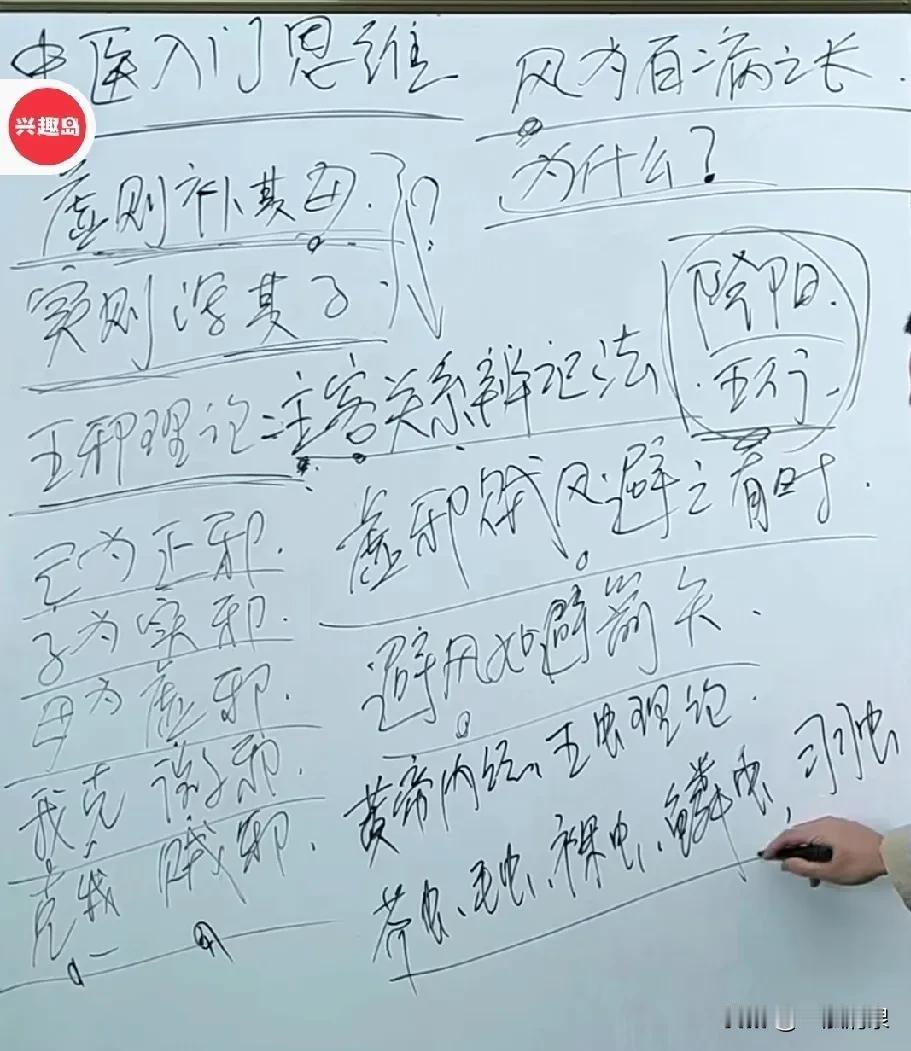 中医入门思维
兴趣岛
虚则补其母.
实则泻其子.
?
风为百病之长.
为什么?
阴阳.
五行.
五邪理论:主客关系辨证法
己为正邪.
子为实邪.
母为虚邪.
我克 微邪.
克我 贼邪.
虚邪贼风.避之有时.
避风如避箭矢.
黄帝内经、五虫理论.
介虫、毛虫、裸虫、鳞虫、羽虫